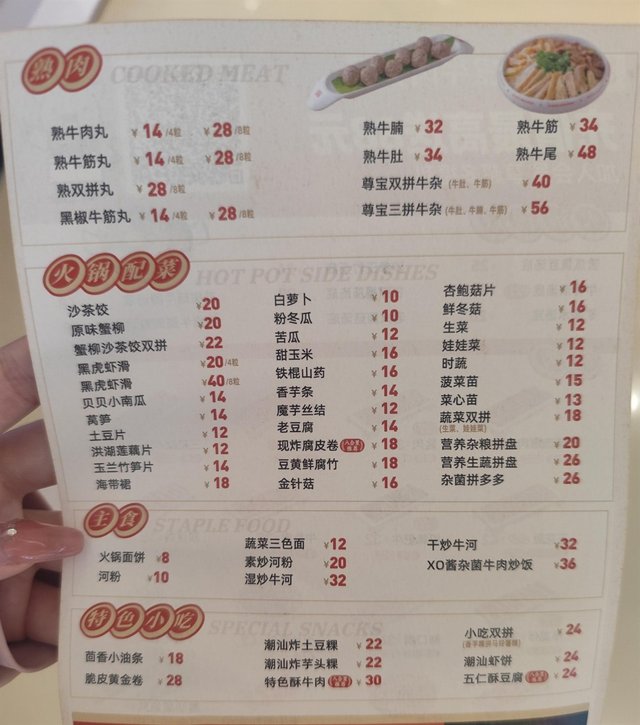 熟肉 COOKED MEAT
熟牛肉丸 ¥14/4粒 ¥28/8粒
熟牛筋丸 ¥14/4粒 ¥28/8粒
熟双拼丸 ¥28/8粒
黑椒牛筋丸 ¥14/4粒 ¥28/8粒
熟牛腩 ¥32
熟牛肚 ¥34
尊宝双拼牛杂(牛肚、牛筋) ¥40
尊宝三拼牛杂(牛肚、牛腩、牛筋) ¥56
熟牛筋 ¥34
熟牛尾 ¥48
火锅配菜 HOT POT SIDE DISHES
沙茶饺 ¥20
原味蟹柳 ¥20
蟹柳沙茶饺双拼 ¥22
黑虎虾滑 ¥20/4粒
黑虎虾滑 ¥40/8粒
贝贝小南瓜 ¥14
莴笋 ¥14
土豆片 ¥12
洪湖莲藕片 ¥12
玉兰竹笋片 ¥14
海带裙 ¥18
白萝卜 ¥10
粉冬瓜 ¥10
苦瓜 ¥12
甜玉米 ¥16
铁棍山药 ¥16
香芋条 ¥14
魔芋丝结 ¥12
老豆腐 ¥14
现炸腐皮卷 ¥18
豆黄鲜腐竹 ¥18
金针菇 ¥16
杏鲍菇片 ¥16
鲜冬菇 ¥16
生菜 ¥12
娃娃菜 ¥12
时蔬 ¥12
菠菜苗 ¥15
菜心苗 ¥13
蔬菜双拼 ¥18
(生菜、娃娃菜)
营养杂粮拼盘 ¥20
营养生蔬拼盘 ¥26
杂菌拼多多 ¥26
主食 STAPLE FOOD
火锅面饼 ¥8
河粉 ¥10
蔬菜三色面 ¥12
素炒河粉 ¥20
湿炒牛河 ¥32
干炒牛河 ¥32
XO酱杂菌牛肉炒饭 ¥36
特色小吃 SPECIAL SNACKS
茴香小油条 ¥18
脆皮黄金卷 ¥28
潮汕炸土豆粿 ¥22
潮汕炸芋头粿 ¥22
特色酥牛肉 ¥30
小吃双拼 ¥24
潮汕虾饼 ¥24
五仁酥豆腐 ¥24